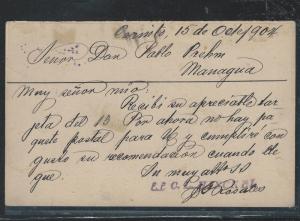 Corinto, 15 de Oct. 1904
Señor Don Pablo
Managua
Muy señor mio:
Recibí su apreciable tar-
jeta del 13 Por ahora no hay pa-
quete postal para U. y cumpliré con
gusto su recomendacion cuando lle-
gue.
Su muy atto SS
Rosales